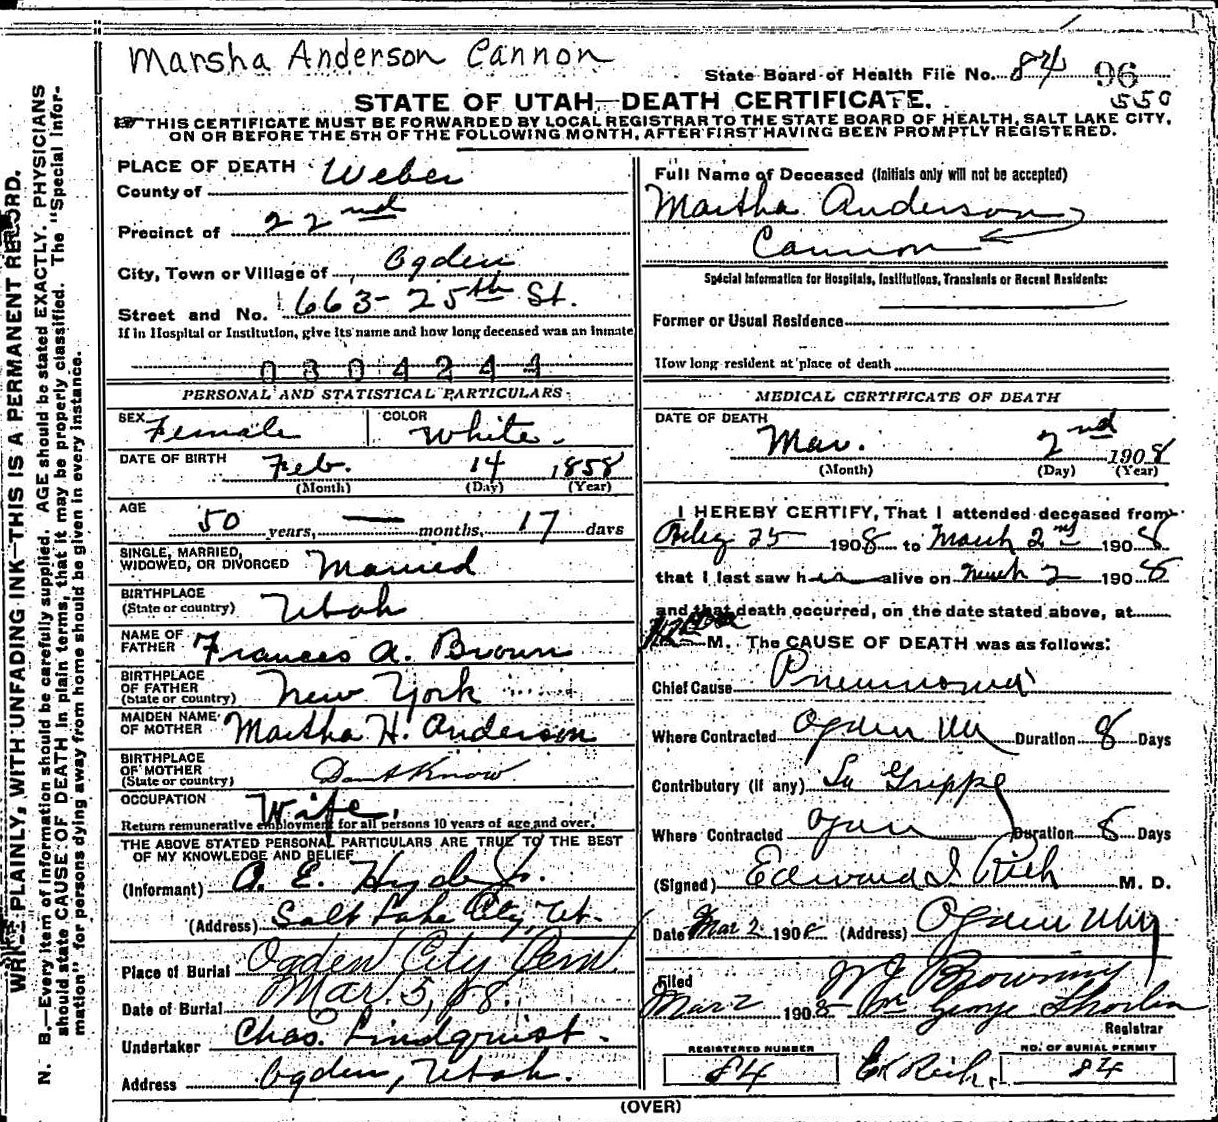 Marsha Anderson Cannon
State Board of Health File No. 84 96
550
STATE OF UTAH—DEATH CERTIFICATE.
THIS CERTIFICATE MUST BE FORWARDED BY LOCAL REGISTRAR TO THE STATE BOARD OF HEALTH, SALT LAKE CITY,
ON OR BEFORE THE 5TH OF THE FOLLOWING MONTH, AFTER FIRST HAVING BEEN PROMPTLY REGISTERED.
PLACE OF DEATH
County of Weber
Precinct of 22nd
City, Town or Village of Ogden
Street and No. 663-25th St.
If in Hospital or Institution, give its name and how long deceased was an inmate
0304244
PERSONAL AND STATISTICAL PARTICULARS
SEX Female COLOR White.
DATE OF BIRTH Feb. 14 1858
(Month) (Day) (Year)
AGE
50 years, — months, 17 days
SINGLE, MARRIED,
WIDOWED, OR DIVORCED Married
BIRTHPLACE
(State or country) Utah
NAME OF
FATHER Frances A. Brown
BIRTHPLACE
OF FATHER
(State or country) New York
MAIDEN NAME
OF MOTHER Martha H. Anderson
BIRTHPLACE
OF MOTHER
(State or country) Dont Know
OCCUPATION Wife.
Return remunerative employment for all persons 10 years of age and over.
THE ABOVE STATED PERSONAL PARTICULARS ARE TRUE TO THE BEST
OF MY KNOWLEDGE AND BELIEF
(Informant) A. E. Hyde Jr.
(Address) Salt Lake City, Ut.
Place of Burial Ogden City Cem.
Date of Burial Mar. 5, 08.
Undertaker Chas. Lindquist.
Address Ogden, Utah.
Full Name of Deceased (Initials only will not be accepted)
Martha Anderson
Cannon
Special Information for Hospitals, Institutions, Transients or Recent Residents:
Former or Usual Residence
How long resident at place of death
MEDICAL CERTIFICATE OF DEATH
DATE OF DEATH
Mar. 2nd 1908
(Month) (Day) (Year)
I HEREBY CERTIFY, That I attended deceased from
25 1908 to March 2nd 1908
that I last saw her alive on March 2 1908
and that death occurred, on the date stated above, at
M. The CAUSE OF DEATH was as follows:
Chief Cause Pneumonia
Where Contracted Ogden Duration 8 Days
Contributory (if any) La Grippe
Where Contracted Ogden Duration 8 Days
(Signed) Edward I. Rich M. D.
Date Mar 2 1908 (Address) Ogden Utah
Filed W J Browning
Mar 2 1908 George
Registrar
REGISTERED NUMBER NO. OF BURIAL PERMIT
84 Rich. 84
(OVER)
WRITE PLAINLY, WITH UNFADING INK—THIS IS A PERMANENT RECORD.
N. B.—Every item of information should be carefully supplied. AGE should be stated EXACTLY. PHYSICIANS
should state CAUSE OF DEATH in plain terms, that it may be properly classified. The "Special Infor-
mation" for persons dying away from home should be given in every instance.